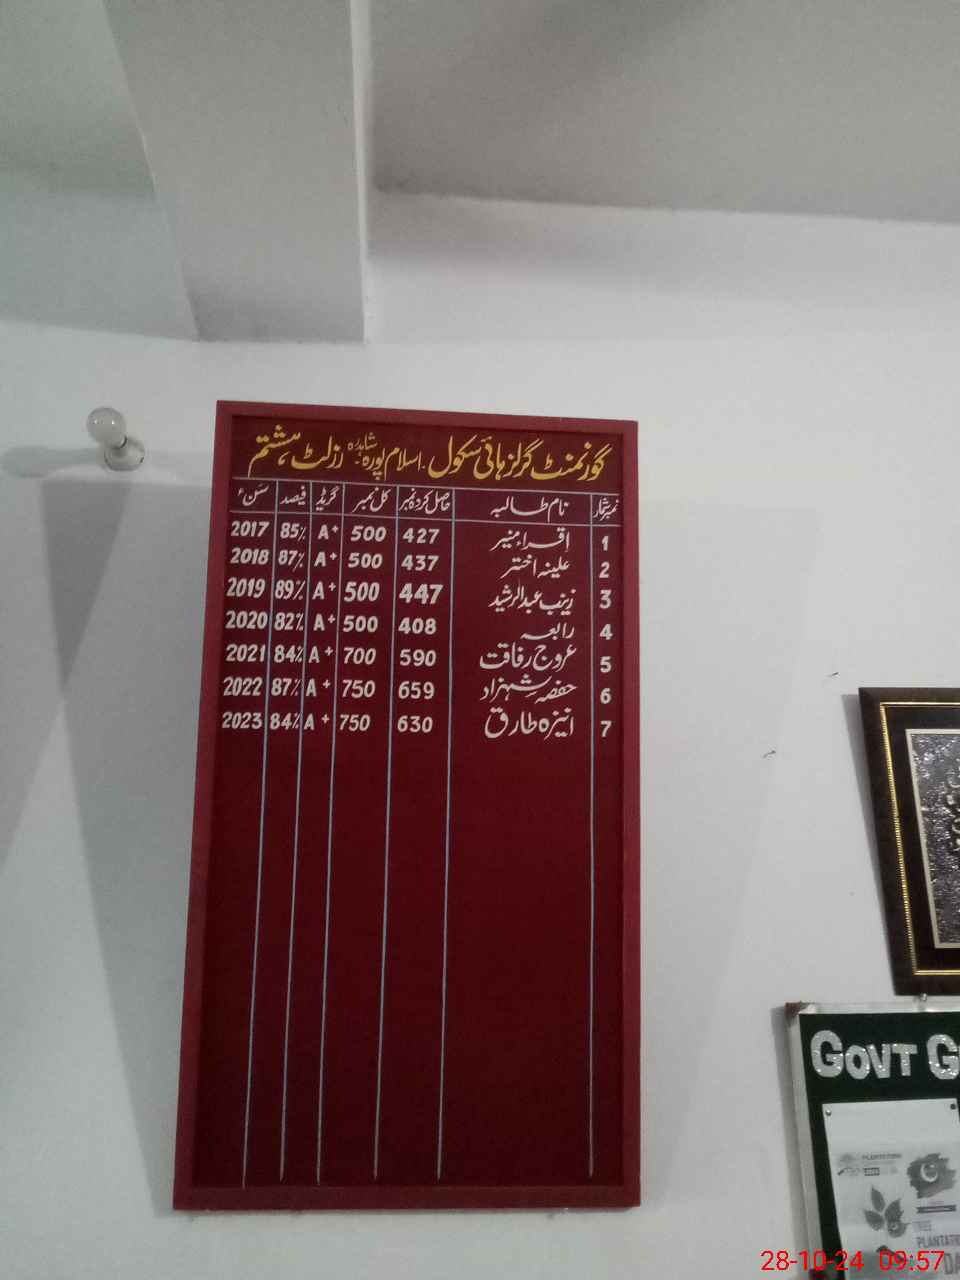 گورنمنٹ گرلز ہائی سکول۔ اسلام پورہ۔ شاہدرہ رزلٹ ہشتم
نمبر شمار نام طالبہ حاصل کردہ نمبر کل نمبر گریڈ فیصد سَن ء
1 اقراء منیر 427 500 A+ 85% 2017
2 علینہ اختر 437 500 A+ 87% 2018
3 زینب عبدالرشید 447 500 A+ 89% 2019
4 رابعہ 408 500 A+ 82% 2020
5 عروج رفاقت 590 700 A+ 84% 2021
6 حفصہ شہزاد 659 750 A+ 87% 2022
7 انیزہ طارق 630 750 A+ 84% 2023
GOVT G
PLANTATION
TREE
PLANTATI
DA
28-10-24 09:57